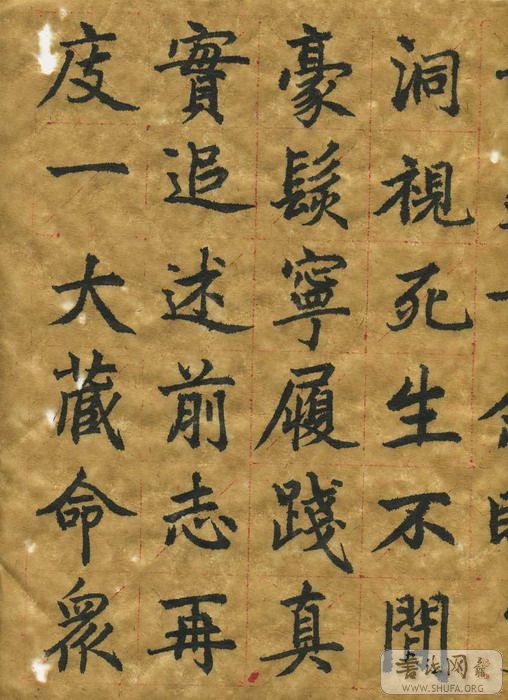 洞視死生不間
豪髮寧履踐真
實追述前志再
庋一大藏命眾
書法网
WWW.SHUFA.ORG